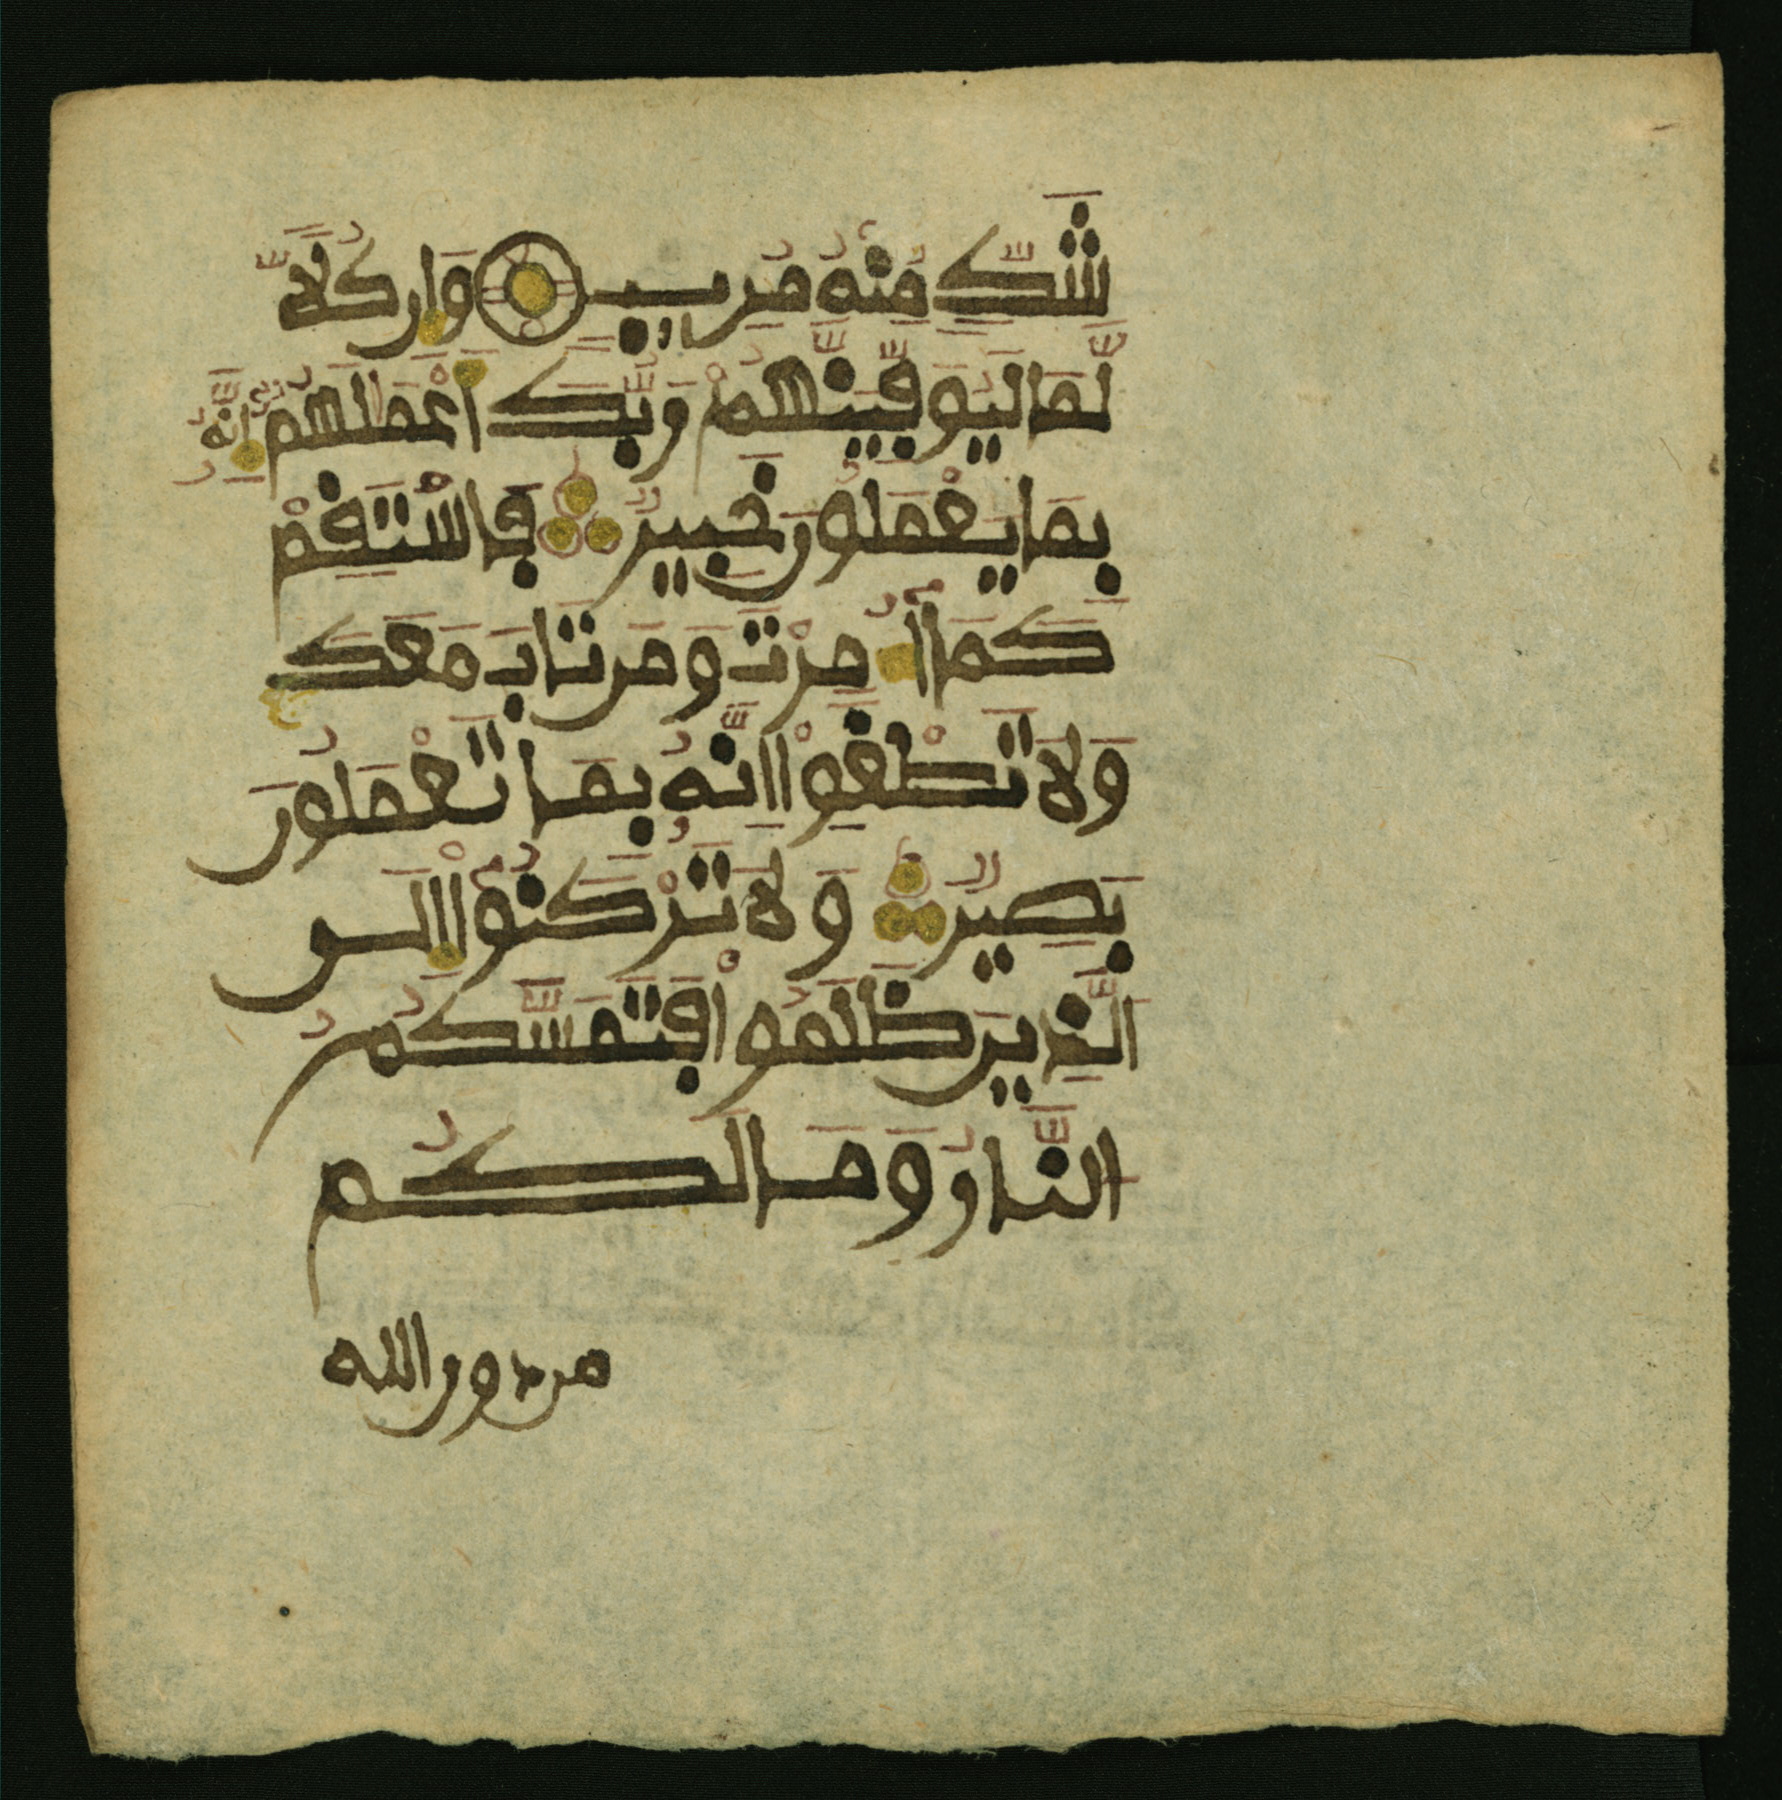 شَكٍّ مِّنْهُ مُرِيبٍ وَإِن كُلّاً
لَّمَا لَيُوَفِّيَنَّهُمْ رَبُّكَ أَعْمَلَهُمُ إِنَّهُ
بِمَا يَعْمَلُونَ خَبِيرٌ فَاسْتَقِمْ
كَمَا أُمِرْتَ وَمَن تَابَ مَعَكَ
وَلَا تَطْغَوْا اِنَّهُ بِمَا تَعْمَلُونَ
بَصِيرٌ وَلَا تَرْكَنُوْا إِلَى
الَّذِينَ ظَلَمُواْ فَتَمَسَّكُمُ
النَّارُ وَمَا لَكُم
من دون الله